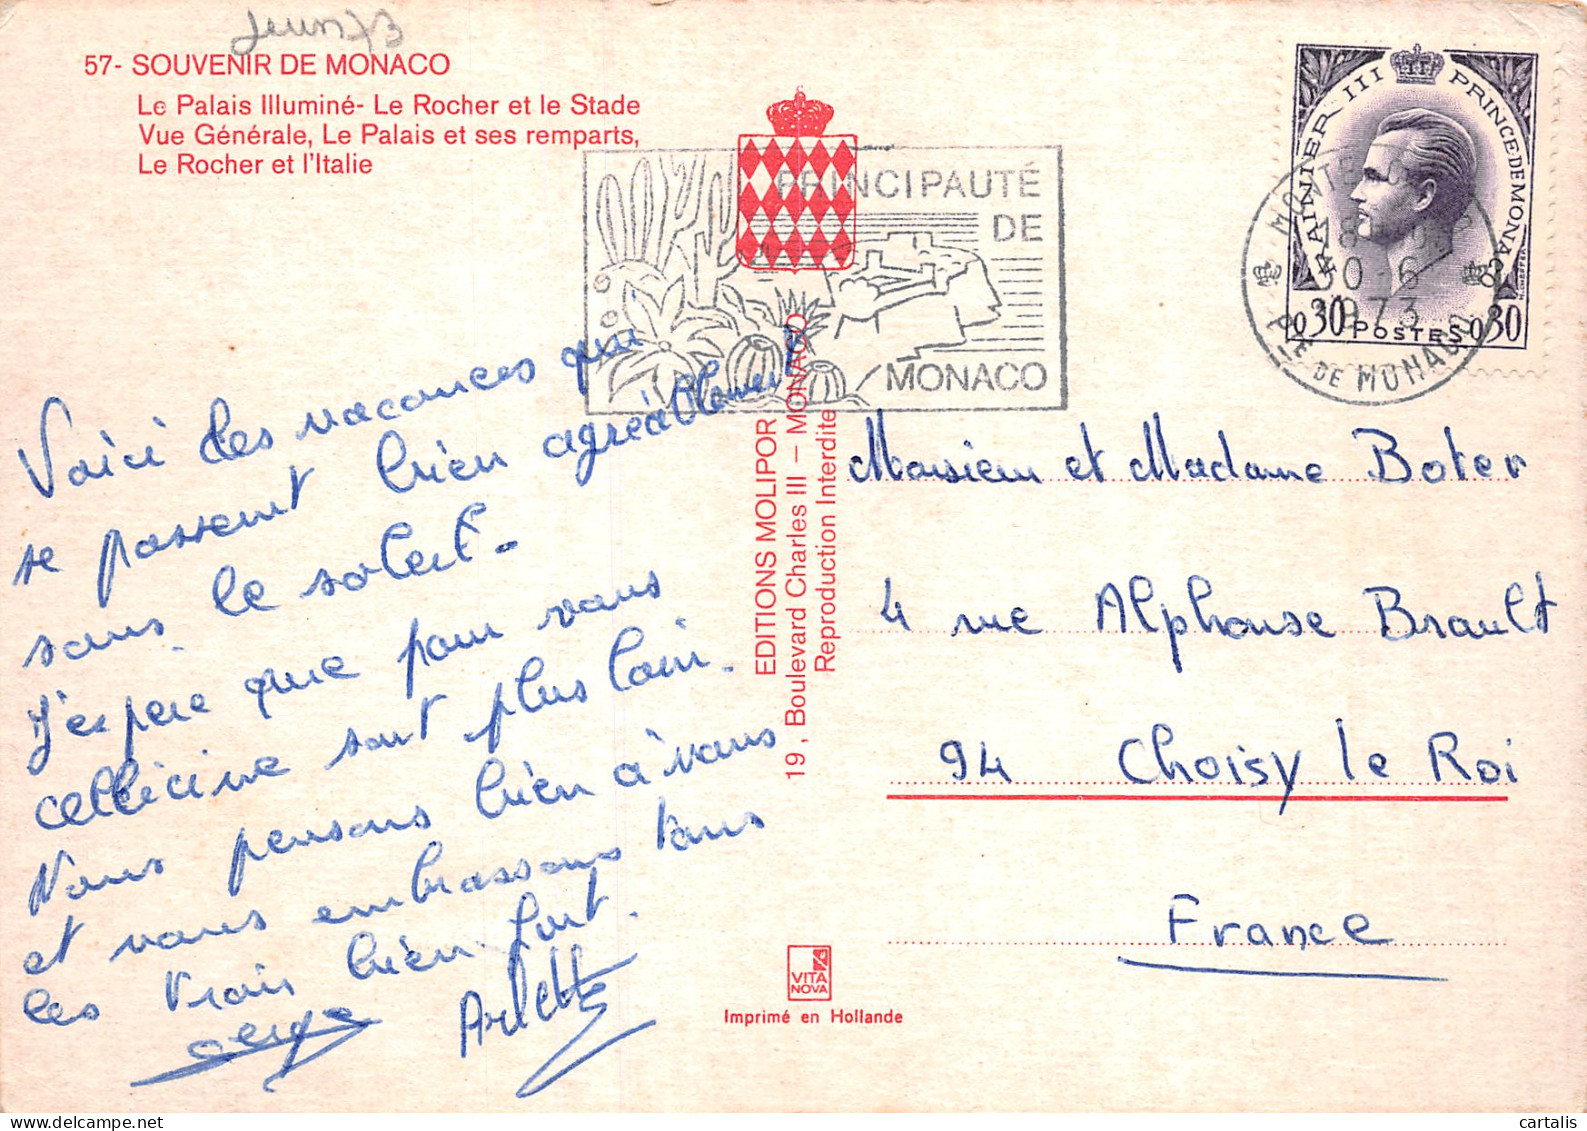 Juin 73
57- SOUVENIR DE MONACO
Le Palais Illuminé- Le Rocher et le Stade
Vue Générale, Le Palais et ses remparts,
Le Rocher et l'Italie
PRINCIPAUTÉ
DE
MONACO
RAINIER III PRINCE DE MONACO
0,30 POSTES 0,30
MONTE-CARLO
30-6
1973
PTE DE MONACO
Voici des vacances qui
se passent bien agréablement
sous le soleil-
J'espère que pour vous
celles ne sont plus loin.
Nous pensons bien à vous
et vous embrassons tous
les trois bien fort.
Serge Arlette
EDITIONS MOLIPOR
19, Boulevard Charles III – MONACO
Reproduction Interdite
VITA
NOVA
Imprimé en Hollande
Monsieur et Madame Boter
4 rue Alphonse Brault
94 Choisy le Roi
France
cartalis